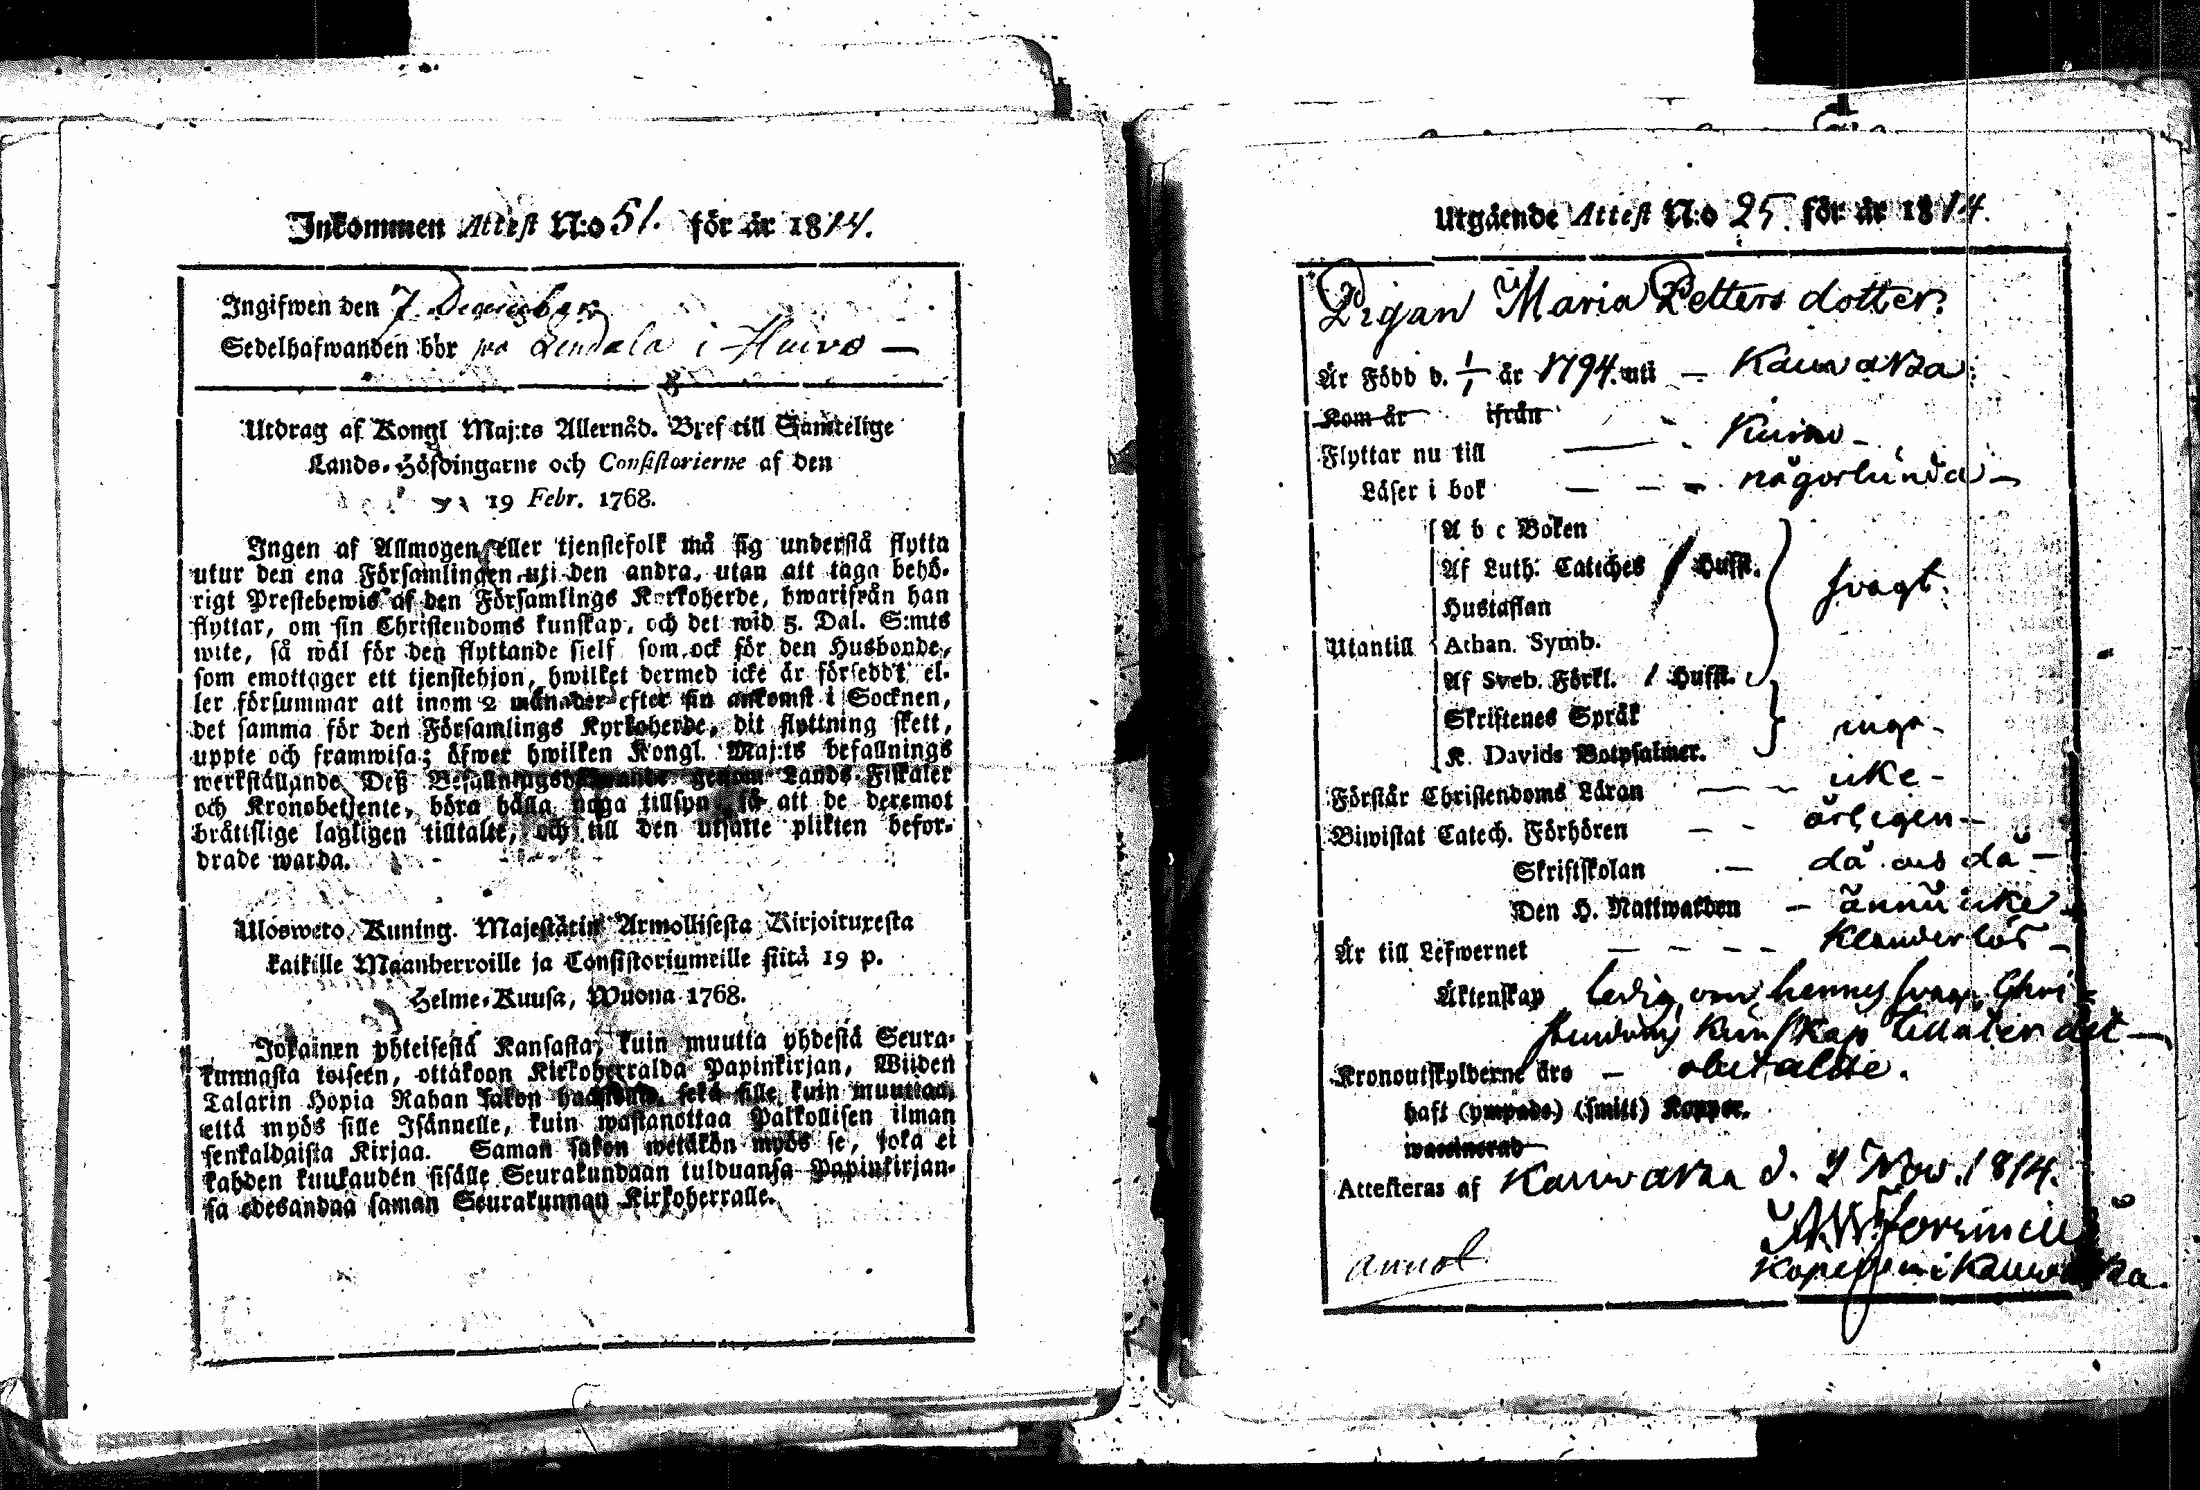 Inkommen Attest N:o 51. för år 1814.
Ingifwen den 7 December
Sedelhafwanden bor på Lendala i Kumo —
Utdrag af Kongl Maj:ts Allernåd. Bref till Samtelige
Lands-Höfdingarne och Consistorierne af den
19 Febr. 1768.
Ingen af Allmogen eller tjenstefolk må sig understå flytta
utur den ena Församlingen uti den andra, utan att taga behö-
rigt Prestebewis af den Församlings Kyrkoherde, hwarifrån han
flyttar, om sin Christendoms kunskap, och det wid 5. Dal. S:mts
wite, så wäl för den flyttande sielf som ock för den Husbonde,
som emottager ett tjenstehjon, hwilket dermed icke är förseddt el-
ler försummar att inom 2 månader efter sin ankomst i Socknen,
det samma för den Församlings Kyrkoherde, dit flyttning skett,
uppte och framwisa; öfwer hwilken Kongl. Maj:ts befallnings
werkställande Deß Befallningshafwande genom Lands-Fiskaler
och Kronobetjente, böra hålla noga tillsyn, så att de deremot
bråttslige lagligen tilltalte, och till den utsatte plikten befor-
drade warda.
Ulosweto Kuning. Majestätin Armollisesta Kirjoituxesta
kaikille Maanherroille ja Consistoriumeille siitä 19 p.
Helme-Kuusa, Wuona 1768.
Jokainen yhteisestä Kansasta, kuin muutta yhdestä Seura-
kunnasta toiseen, ottakoon Kirkoherralda Papinkirjan, Wiiden
Talarin Hopia Rahan sakon haastolla, sekä sille kuin muuttaa,
että myös sille Isännelle, kuin wastanottaa Palkollisen ilman
senkaldaista Kirjaa. Saman sakon wetäkön myös se, joka ei
kahden kuukauden sisälle Seurakundaan tulduansa Papinkirjan-
sa edesandaa saman Seurakunnan Kirkoherralle.
Utgående Attest N:o 25. för år 1814.
Pigan Maria Petters dotter.
Är Född d. 1/1 år 1794. uti — Kauwatza.
Kom år ifrån
Flyttar nu till — Kumo —
Läser i bok — — — någorlunda —
A b c Boken
Af Luth. Catèches / Hufst.
Hustaflan
Utantill Athan. Symb.
svagt.
Af Sveb. Förkl. / Hufst.
Skriftenes Språk
K. Davids Botpsalmer.
inga.
Förstår Christendoms Läran — — icke —
Biwistat Catech. Förhören — — årligen —
Skriftskolan — då och då —
Den H. Nattwarden — ännu icke
Är till Lefwernet — — — — klanderlös —
Äktenskap ledig, om hennes svaga Chri-
stendoms kunskap tillåter det —
Kronoutskylderne äro — obetalde.
haft (ympade) (smitt) Koppor.
waccinerad
Attesteras af Kauwatza d. 2 Nov. 1814.
annot.
Kapell. i Kauwatza.